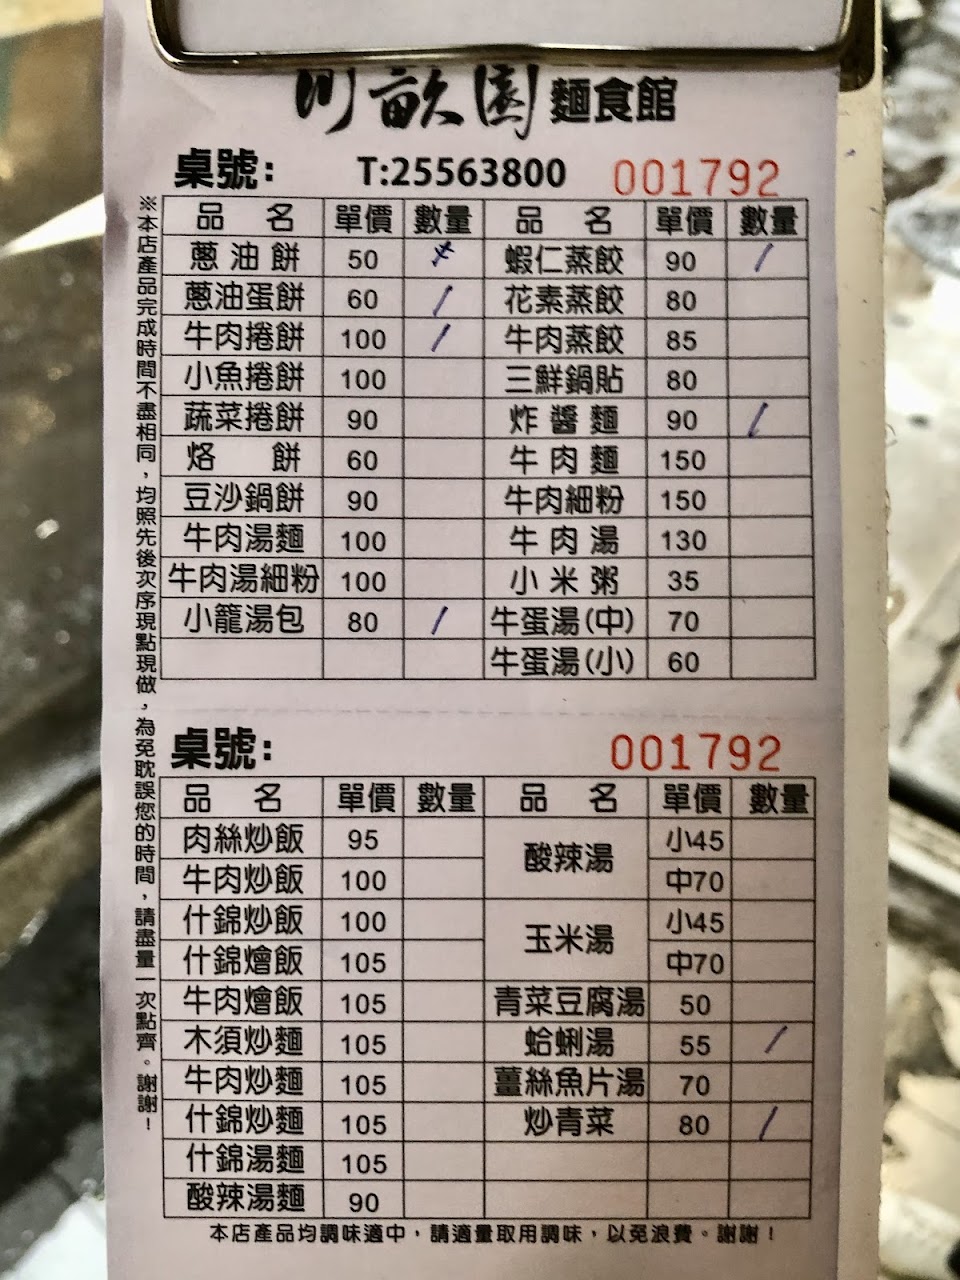 川畝園 麵食館
桌號: T:25563800 001792
品 名 單價 數量 品 名 單價 數量
蔥油餅 50 蝦仁蒸餃 90 /
蔥油蛋餅 60 / 花素蒸餃 80
牛肉捲餅 100 / 牛肉蒸餃 85
小魚捲餅 100 三鮮鍋貼 80
蔬菜捲餅 90 炸醬麵 90 /
烙餅 60 牛肉麵 150
豆沙鍋餅 90 牛肉細粉 150
牛肉湯麵 100 牛肉湯 130
牛肉湯細粉 100 小米粥 35
小籠湯包 80 / 牛蛋湯(中) 70
牛蛋湯(小) 60
桌號: 001792
品 名 單價 數量 品 名 單價 數量
肉絲炒飯 95 酸辣湯 小45
牛肉炒飯 100 中70
什錦炒飯 100 玉米湯 小45
什錦燴飯 105 中70
牛肉燴飯 105 青菜豆腐湯 50
木須炒麵 105 蛤蜊湯 55 /
牛肉炒麵 105 薑絲魚片湯 70
什錦炒麵 105 炒青菜 80 /
什錦湯麵 105
酸辣湯麵 90
本店產品均調味適中，請適量取用調味，以免浪費。謝謝！
※本店產品完成時間不盡相同，均照先後次序現點現做，為免耽誤您的時間，請盡量一次點齊。謝謝！